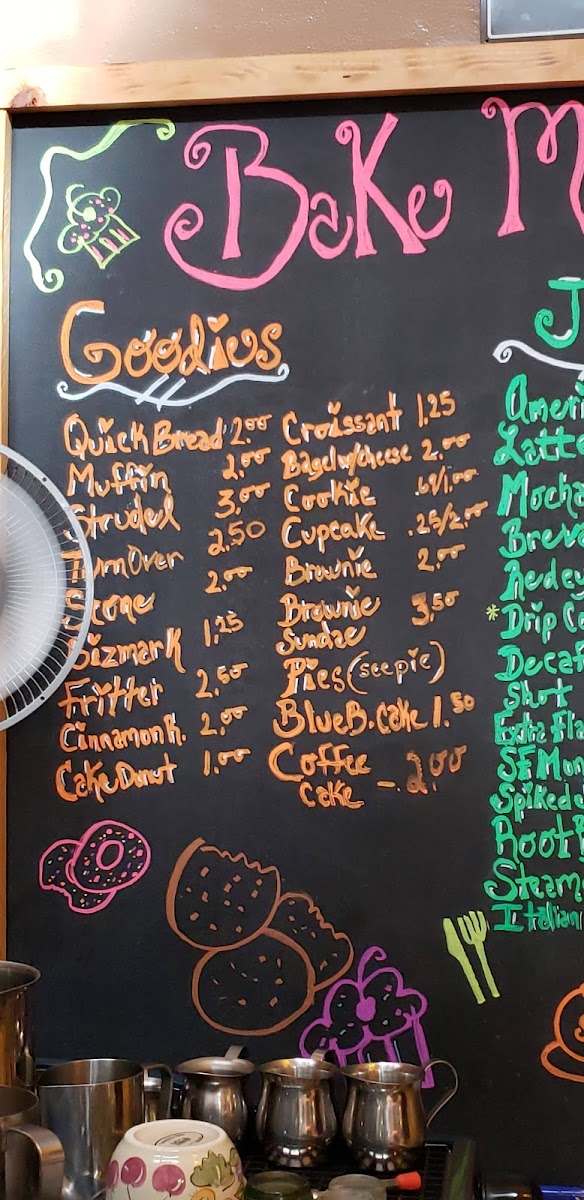 Bake M
Goodies
Quick Bread 2.00
Muffin 2.00
Strudel 3.00
Turn Over 2.50
Scone 2.00
Bizmark 1.25
Fritter 2.50
Cinnamon R. 2.00
Cake Donut 1.00
Croissant 1.25
Bagel w/cheese 2.00
Cookie .69/1.00
Cupcake .25/2.00
Brownie 2.00
Brownie 3.50
Sundae
Pies (see pie)
BlueB. Cake 1.50
Coffee
Cake -. 2.00
J
Ameri
Latte
Mocha
Breve
Redey
* Drip Co
Decaf
Shot
Extra Fla
SF Mon
Spiked
Root B
Steame
Italian